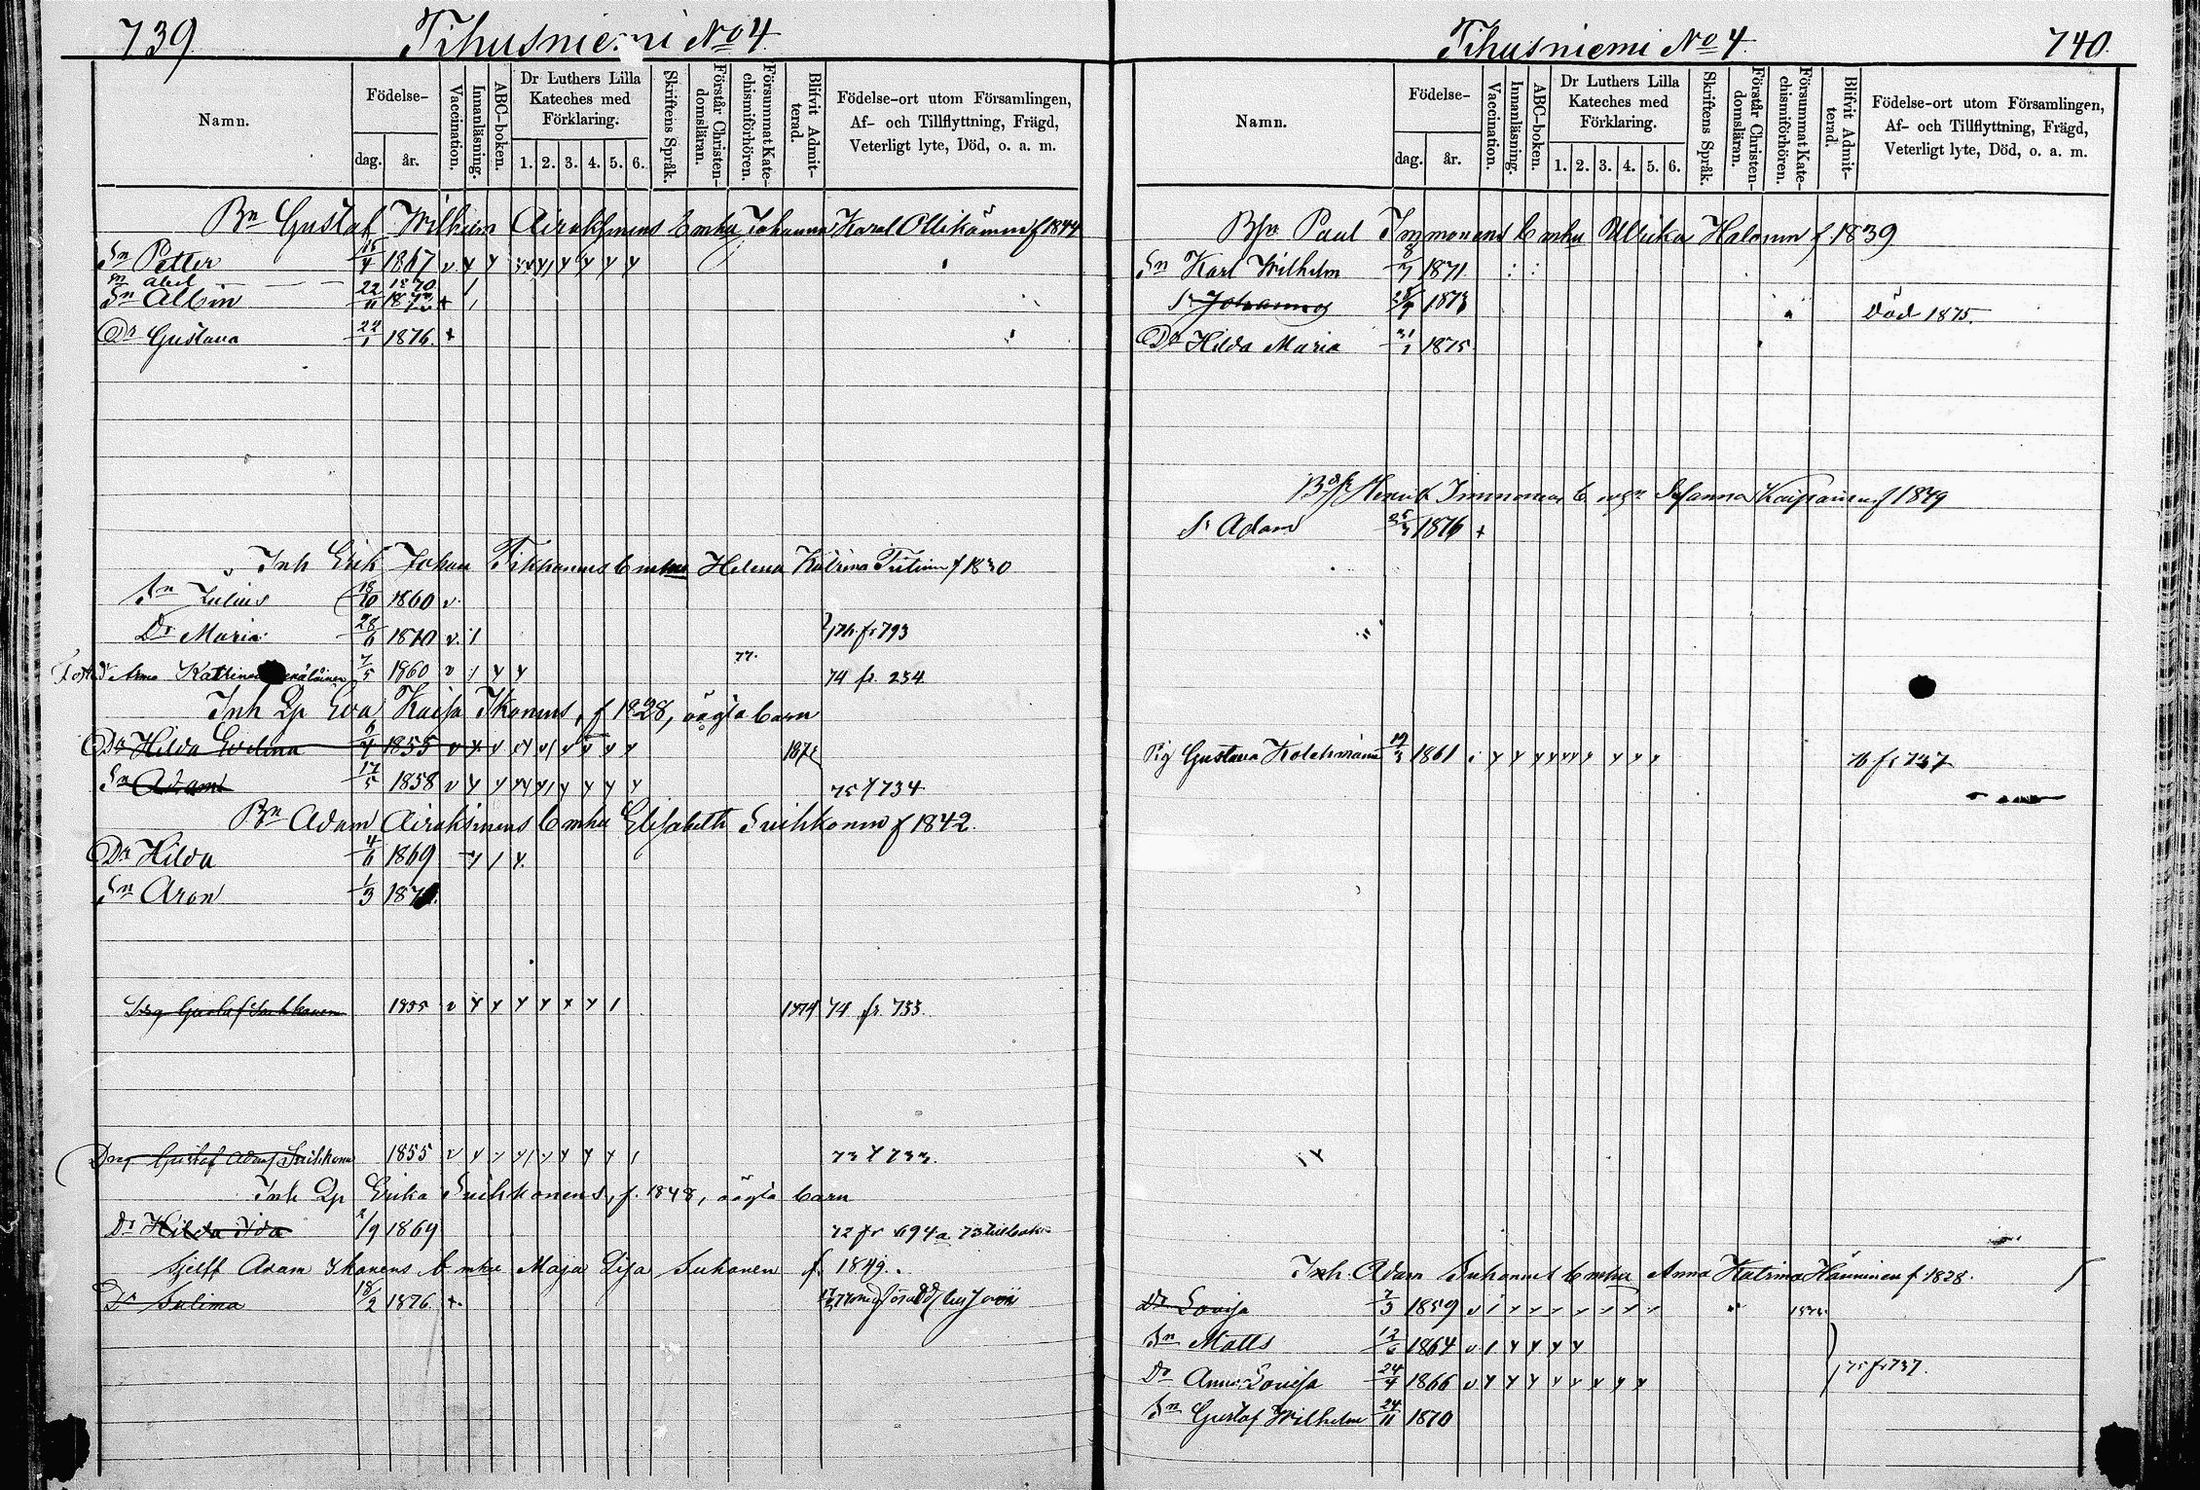 739 Tihusniemi No 4
Namn. Födelse- dag. år. Vaccination. Innanläsning. ABC-boken. Dr Luthers Lilla Kateches med Förklaring. 1. 2. 3. 4. 5. 6. Skriftens Språk. Förstår Christendomsläran. Försummat Katechismiförhören. Blifvit Admitterad. Födelse-ort utom Församlingen, Af- och Tillflyttning, Frägd, Veterligt lyte, Död, o. a. m.
Bn Gustaf Wilhelm Airaksinens & mhu Johanna Karol. Ollikainen f 1844
Sn Petter 15/4 1867 v
Sn Abel 1870
Sn Albin 22/11 187
Dr Gustava 22/1 1876 +
Inh Erik Johan Tikkanens & mhu Helena Katrina Tutinen f 1830
Sn Julius 18/10 1860 v
Dr Maria 28/6 1870 v fr 793
77.
Anna Katrina 7/5 1860 v 74 fr. 254
Inh Qp Eva Kaisa Ikonens, f 1828, oägta barn
Dr Hilda Evelina 1855 v
Sn Adam 17/5 1858 v 75 f 734
Bn Adam Airaksinens & mhu Elisabeth Suihkonen f 1842.
Dr Hilda 4/6 1869
Sn Aron 1/3 187
Drg Gustaf Suihkonen 1855 v 1874 74 fr. 733.
Drg Gustaf Adam Suihkonen 1855 v 73 f 733.
Inh Qp Erika Suihkonens, f. 1848, oägta barn
Dr Hilda Ida 2/9 1869 72 fr 694a 73
Sjelff Adam Ikonens & mhu Maja Lisa Suhonen f. 1849.
Dr Sulima 18/2 1876 +
Tihusniemi No 4. 740.
Namn. Födelse- dag. år. Vaccination. Innanläsning. ABC-boken. Dr Luthers Lilla Kateches med Förklaring. 1. 2. 3. 4. 5. 6. Skriftens Språk. Förstår Christendomsläran. Försummat Katechismiförhören. Blifvit Admitterad. Födelse-ort utom Församlingen, Af- och Tillflyttning, Frägd, Veterligt lyte, Död, o. a. m.
Paul Immonens & mhu Ulrika Halonen f. 1839
Sn Karl Wilhelm 8/7 1871
Sn Johannes 1873 Död 1875.
Dr Hilda Maria 31/1 1875
Henrik Immonens & Kaipainen f 1849
Sn Adam 1876 +
Pig Gustava Kolehmainen 19/3 1861 76 fr 737
Inh. Adam Suhonens & mhu Anna Katrina Hänninen f 1828.
Dr Lovisa 7/3 1859 v 1875
Sn Matts 12/6 1864 v
75 fr 737.
Dr Anna Lovisa 24/4 1866 v
Sn Gustaf Wilhelm 24/11 1870